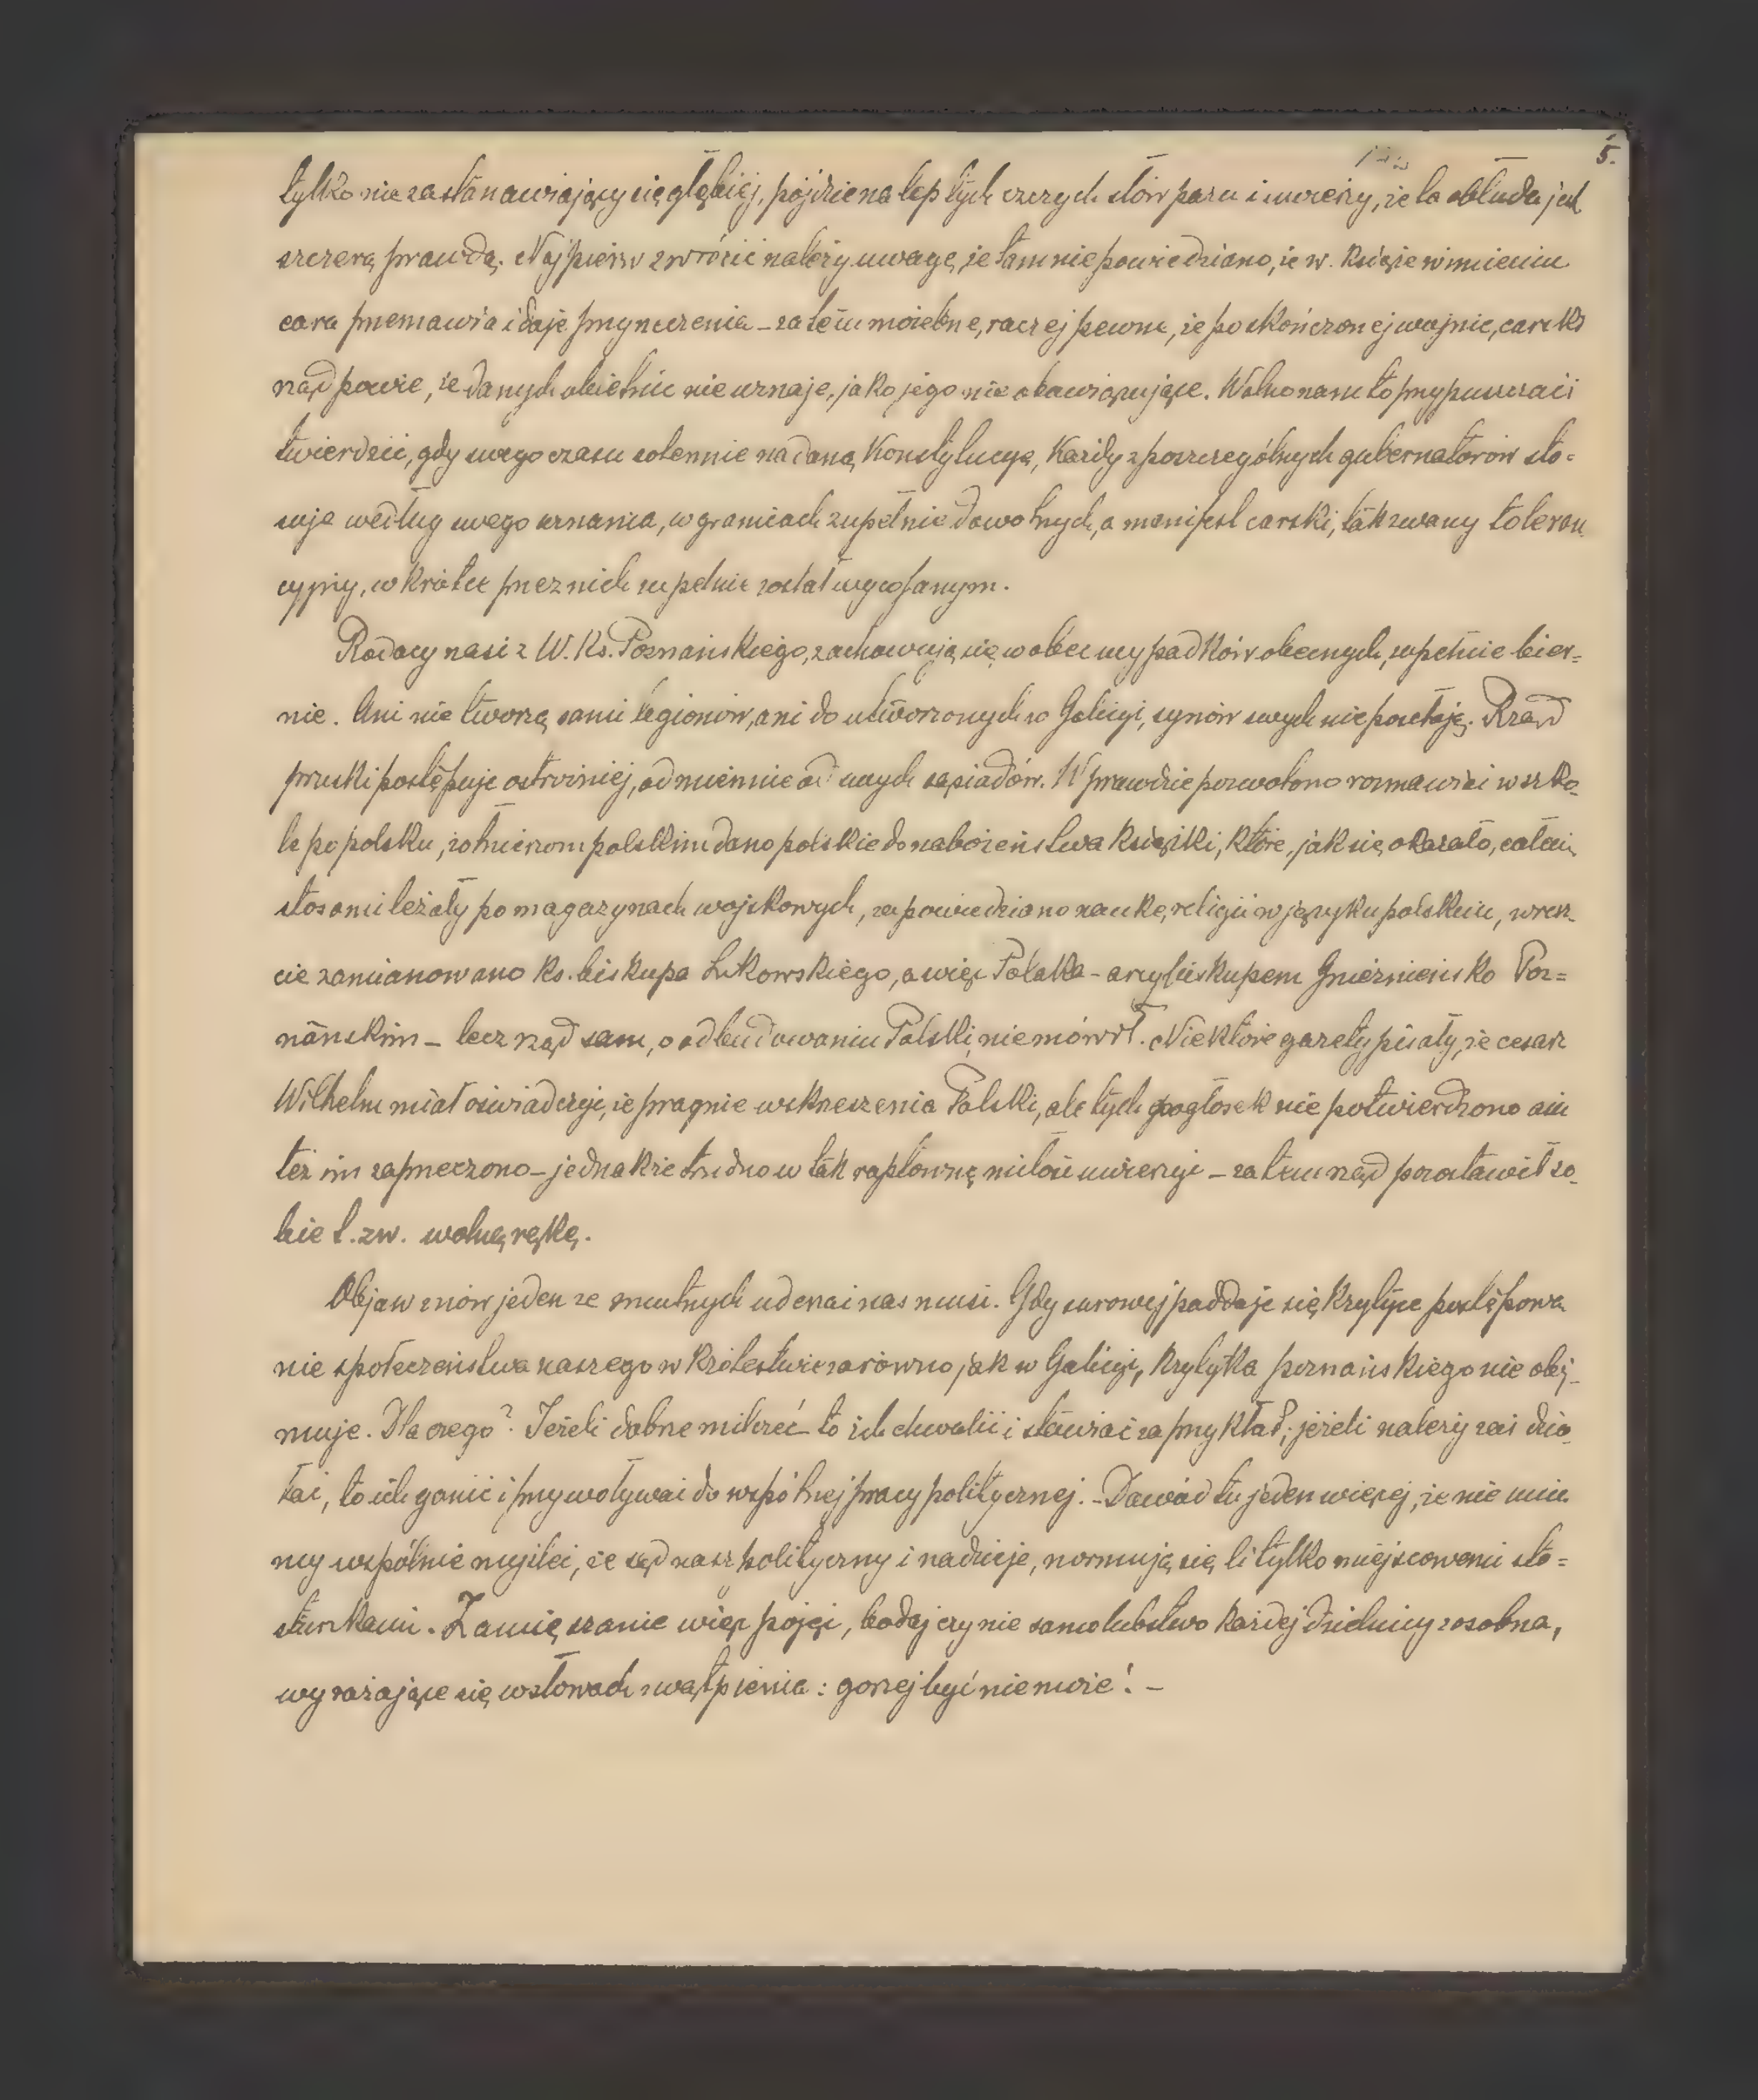 5.
tylko nie zastanawiający się głębiej, pójdzie na lep tych czczych słów paru i uwierzy, że ta obłuda jest
szczerą prawdą. Najpierw zwrócić należy uwagę, że tam nie powiedziano, że w. książe w imieniu
cara przemawia i daje przyrzeczenia – zatem możebne, raczej pewne, że po skończonej wojnie, carski
rząd powie, że danych obietnic nie uznaje, jako jego nie obowiązujące. Wolno nam to przypuszczać i
twierdzić, gdy swego czasu solennie nadaną Konstytucyę, każdy z poszczególnych gubernatorów sto=
suje według swego uznania, w granicach zupełnie dowolnych, a manifest carski, tak zwany toleran-
cyjny, w krótce przez nich zupełnie został wycofanym.
Rodacy nasi z W. Ks. Poznańskiego, zachowują się wobec wypadków obecnych, zupełnie bier=
nie. Ani nie tworzą sami legionów, ani do utworzonych w Galicyi, synów swych nie posełają. Rząd
pruski postępuje ostrożniej, odmiennie od swych sąsiadów. Wprawdzie pozwolono rozmawiać w szko-
le po polsku, żołnierzom polskim dano polskie do nabożeństwa książki, które, jak się okazało, całemi
stosami leżały po magazynach wojskowych, zapowiedziano naukę religii w języku polskim, wresz-
cie zamianowano ks. biskupa Likowskiego, a więc Polaka – arcybiskupem Gnieźnieńsko Poz=
nańskim – lecz rząd sam, o odbudowaniu Polski, nie mówił. Niektóre gazety pisały, że cesarz
Wilhelm miał oświadczyć, że pragnie wskrzeszenia Polski, ale tych pogłosek nie potwierdzono ani
też im zaprzeczono – jednakże trudno w tak raptowną miłość uwierzyć – zatem rząd pozostawił so-
bie t. zw. wolną rękę.
Objaw znów jeden ze smutnych uderzać nas musi. Gdy surowej poddaje się krytyce postępowa
nie społeczeństwa naszego w Królestwie zarówno jak w Galicyi, krytyka poznańskiego nie obej-
muje. Dlaczego? Jeżeli dobrze milczeć to ich chwalić i stawiać za przykład; jeżeli należy zaś dzia-
łać, to ich ganić i przywoływać do wspólnej pracy politycznej. – Dowód tu jeden więcej, że nie umie
my wspólnie myśleć, że sąd nasz polityczny i nadzieje, normują się li tylko miejscowemi sto=
sunkami. Zamięszanie więc pojęć, bodaj czy nie samolubstwo każdej dzielnicy zosobna,
wyrażające się w słowach zwątpienia: gorzej być nie może! –